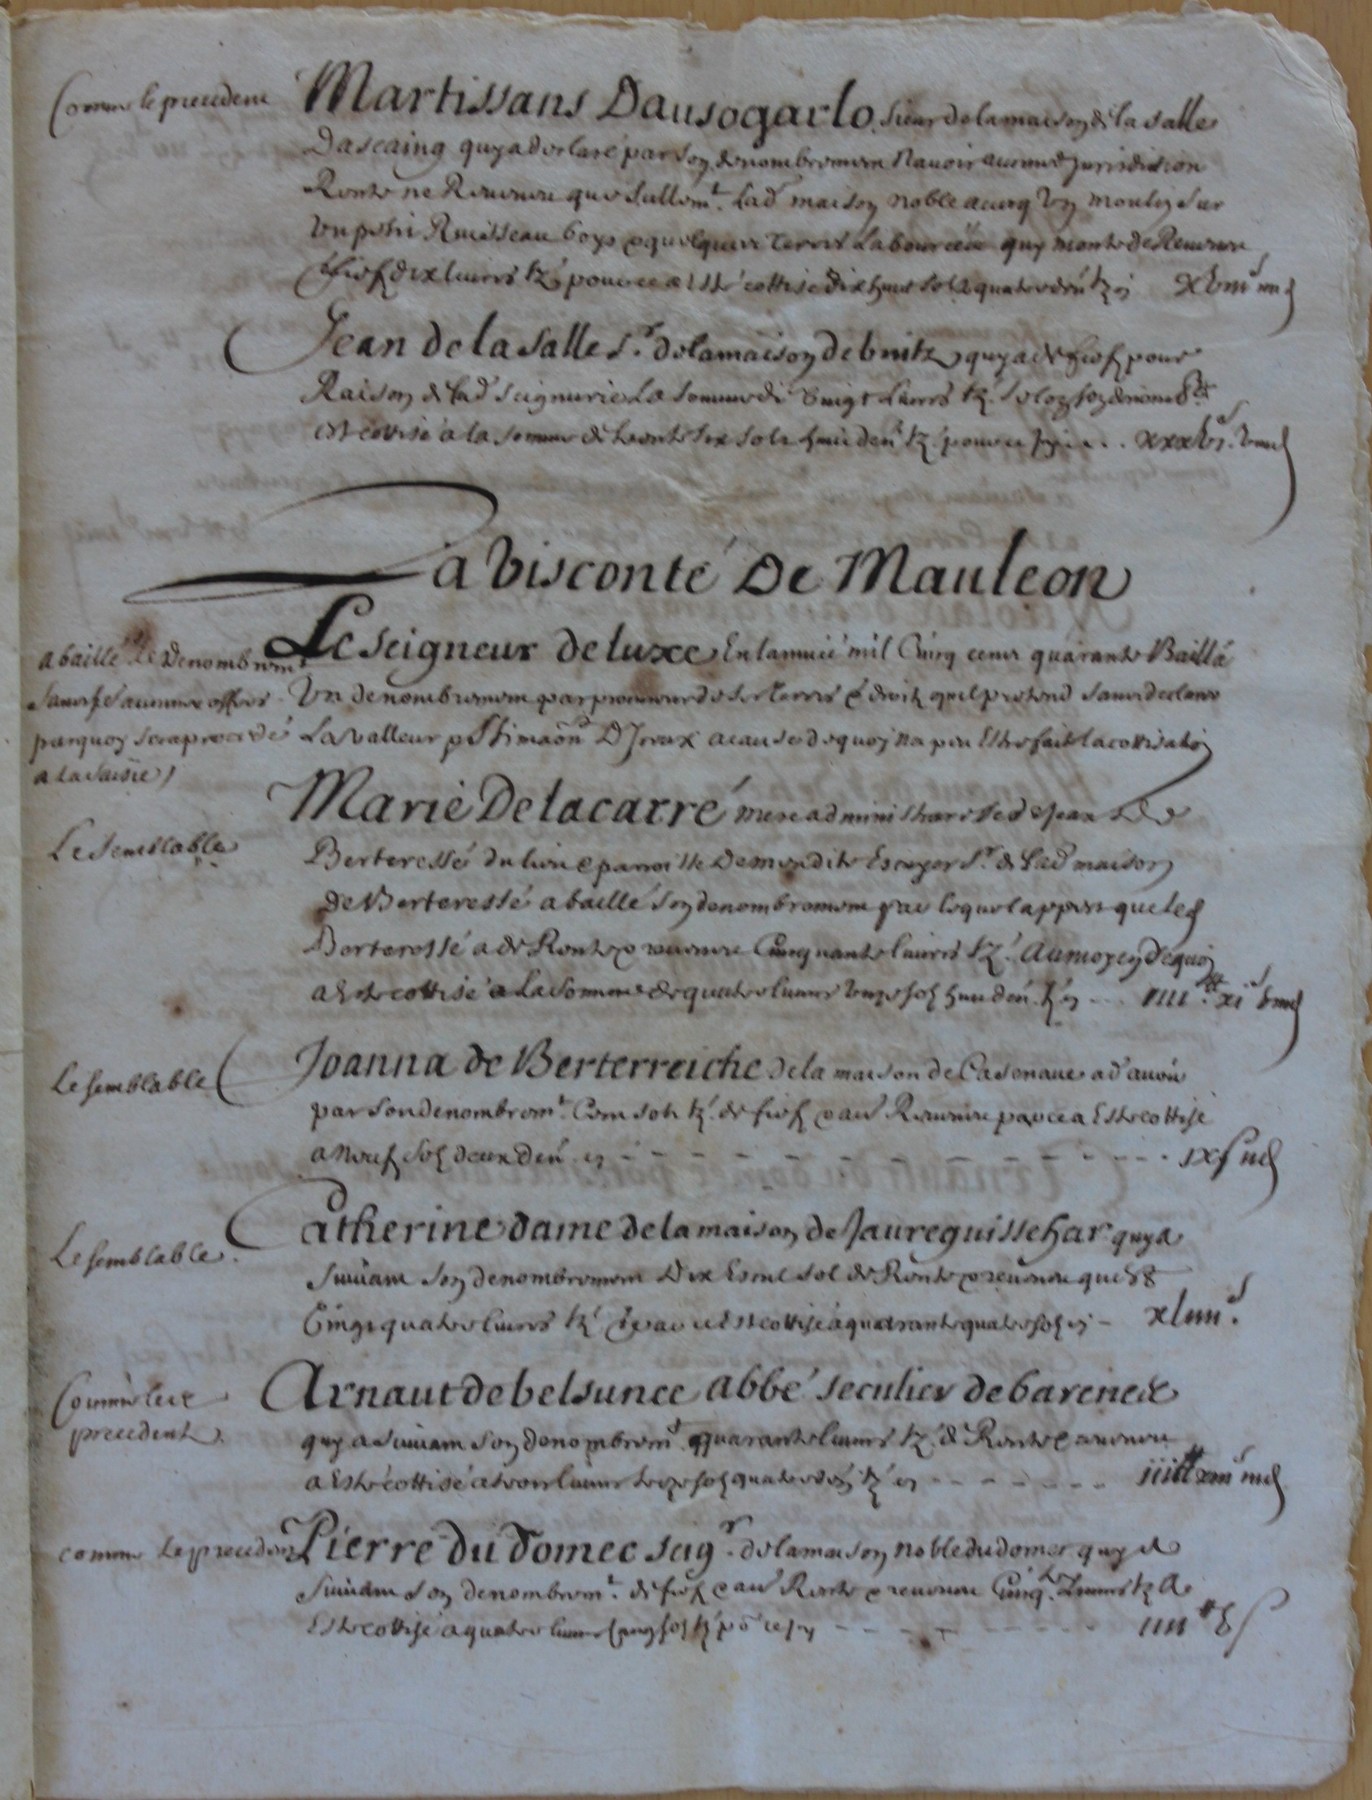 Comme le precedent
Martissans Dausogarlo, sieur de la maison de la salle
Dascaing quy a declaré par son denombrement navoir aucune Jurisdiction
Rente ne Revenu que seullemt. lad maison noble avecq un moulin sur
un petit Ruisseau boys et quelques terres labourées quy monte de Revenu
fief dix livres tz. pour ce a esté cottisé dix huit solz quatre den tz cy xviii s iiii d
Jean de la salle sr. de la maison de bnitz quy a de fief pour
Raison de lad seigneurie La somme de vingt livres tz. selon son denombt
est cottisé a la somme de trente six solz huit den tz. pour ce Icy . . . xxxvi s. viii d
La Visconté De Mauleon
a baillé le Denombremt
sans faire aucunes offres
parquoy sera procedé
a la saisie /
Le Seigneur de luxe En lannée mil Cinq cens quarante Baillá
Un denombrement par procureur de ses terres et droitz quil pretend sans declarer
La valleur Iceux a cause de quoy na peu Estre fait la cottisation
Le semblable
Marie De lacarré mere administraresse de Jean de
Berteressé du lieu et parroisse De mendite Escuyer sr. de lad maison
de Berteressé a baillé son denombrement par lequel appert que led
Berteressé a de Rente et revenu Cinquante livres tz. au moyen de quoy
a Esté cottisé a La Somme de quatre livres unze solz huit den. tz cy . . . iiii tt. xi s viii d
Le semblable
Joanna de Berterreiche de la maison de Casenave a d'avoir
par son denombremt. Cent solz tz. de fief et au Revenu pour ce a Esté cottisé
a Neuf solz deux den. cy - - - - - - - - - - - ix s ii d
Le semblable.
Catherine dame de la maison de Jaureguissehar quy a
suivant son denombrement Dix Escus sol de Rente et revenu que
Vingt quatre livres tz pour ce Est cottisé á quarante quatre solz cy - xliiii s.
Comme le
precedent.
Arnaut de belsunce abbé seculier de bareneix
quy a suivant son denombremt. quarante livres tz. de Rente et revenu
a Esté cottisé a trois livres treize solz quatre den tz cy - - - - - - iii tt xiii s iiii d
comme Le precedent
Pierre du Domec seigr. de la maison noble du domec quy a
suivant son denombremt. de fief et au Rente et revenu Cinqte Livres tz A
Esté cottisé a quatre livres cinq solz tz po ce Icy - - - - - - - iiii tt v s